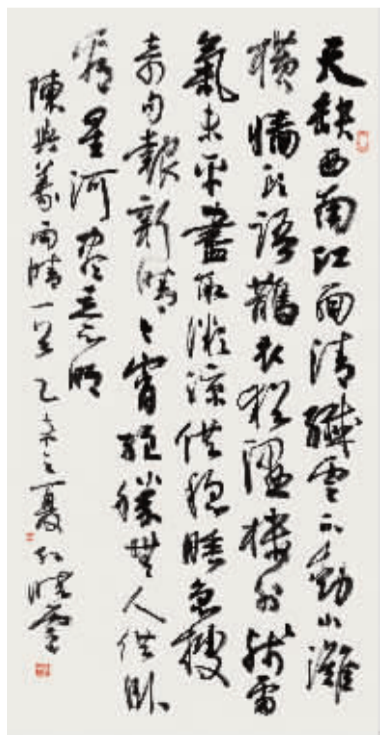 天缺西南江面清纖雲不動小灘
橫牆頭語鵲衣猶溼樓外殘雷
氣未平盡取微涼供穩睡急搜
奇句報新晴今宵絕勝無人供臥
看星河盡意明
陳與義雨晴一首乙未之夏